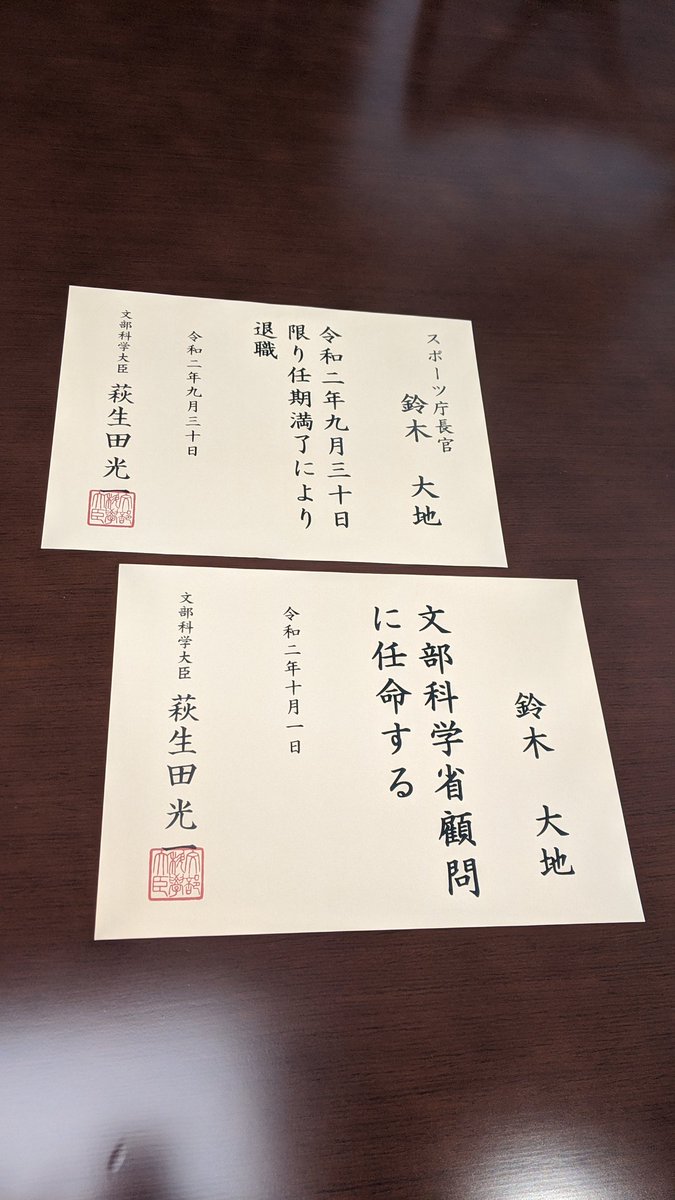 スポーツ庁長官
鈴木 大地
令和二年九月三十日
限り任期満了により
退職
令和二年九月三十日
文部科学大臣 萩生田光一
文部科学大臣
鈴木 大地
文部科学省顧問
に任命する
令和二年十月一日
文部科学大臣 萩生田光一
文部科学大臣